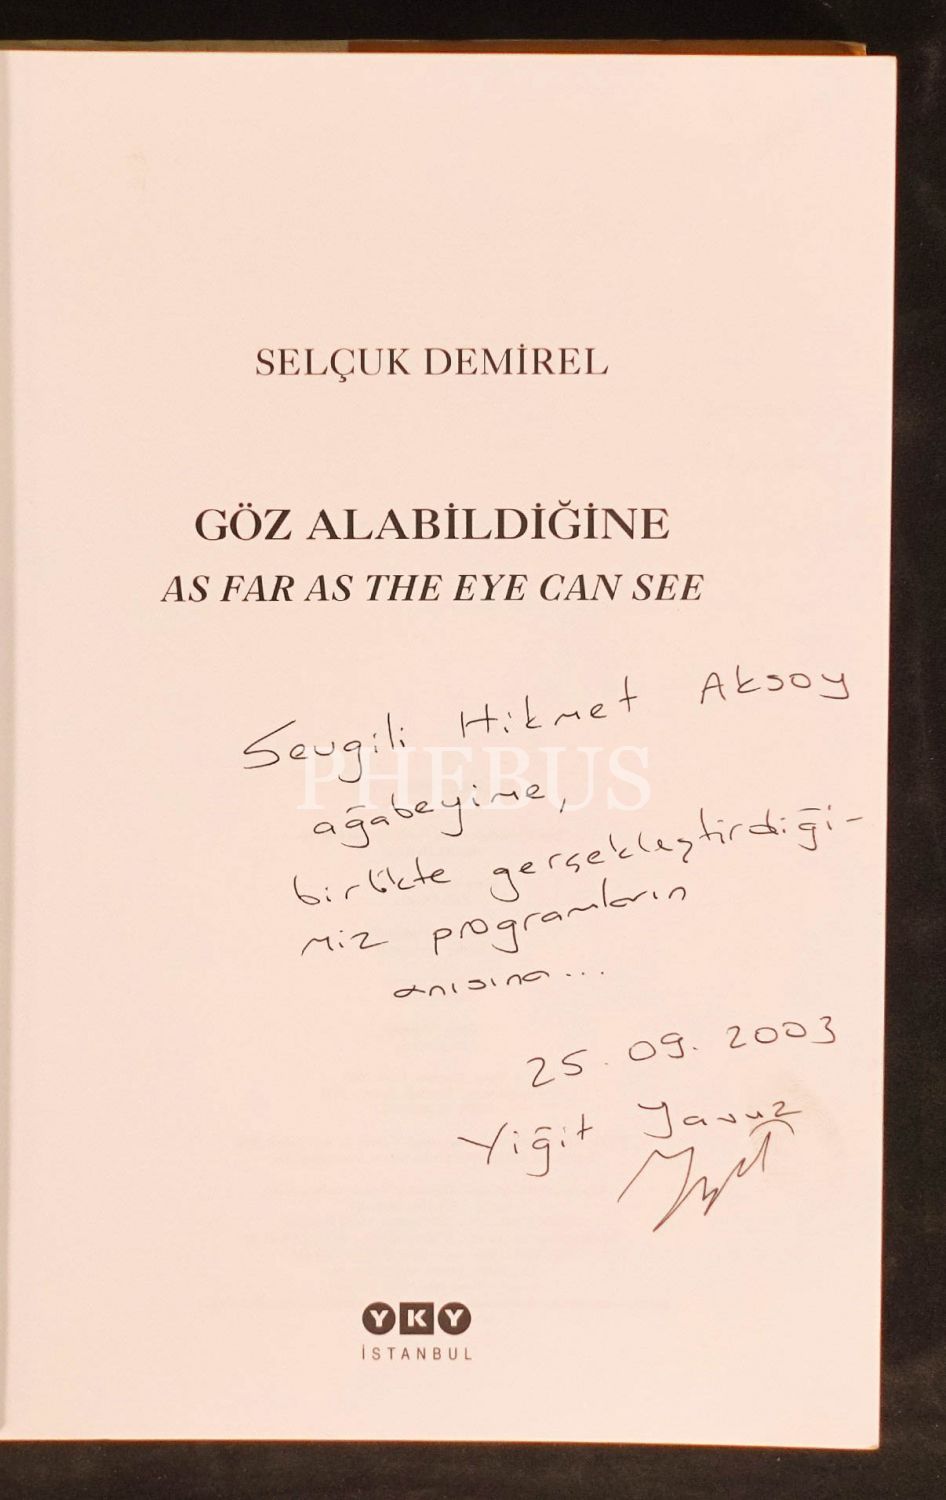 SELÇUK DEMİREL
GÖZ ALABİLDİĞİNE
AS FAR AS THE EYE CAN SEE
Sevgili Hikmet Aksoy
PHEBUS
ağabeyime,
birlikte gerçekleştirdiği-
miz programların
anısına...
25.09.2003
Yiğit Yavuz
YKY
İSTANBUL